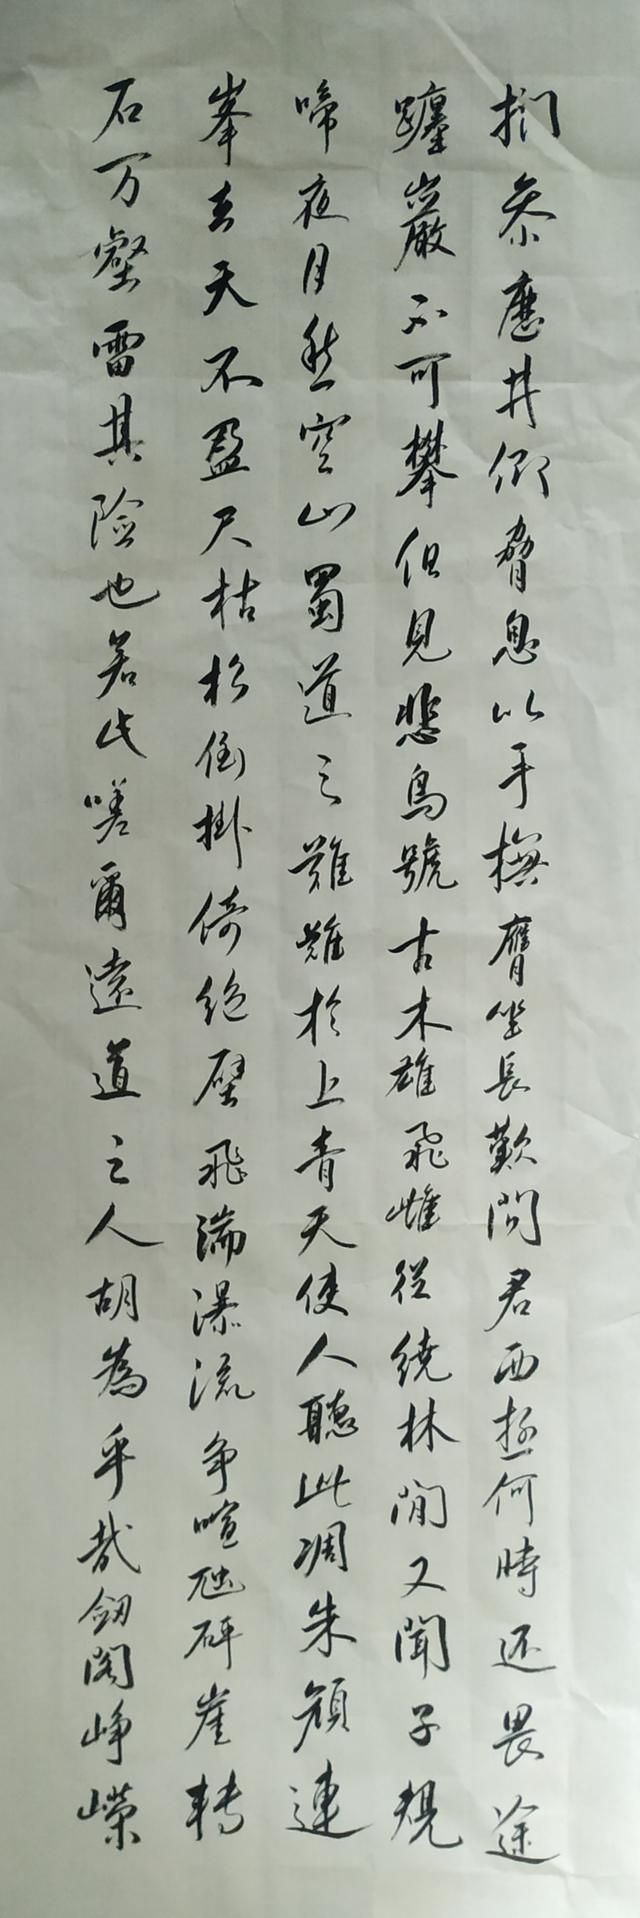 捫參歷井仰脅息以手撫膺坐長歎問君西遊何時还畏途
躔巖不可攀但見悲鳥號古木雄飛雌從繞林間又聞子規
啼夜月愁空山蜀道之難難於上青天使人聽此凋朱顏連
峯去天不盈尺枯松倒掛倚絕壁飛湍瀑流争喧豗砰崖轉
石万壑雷其险也若此嗟爾遠道之人胡為乎哉劒閣崢嶸